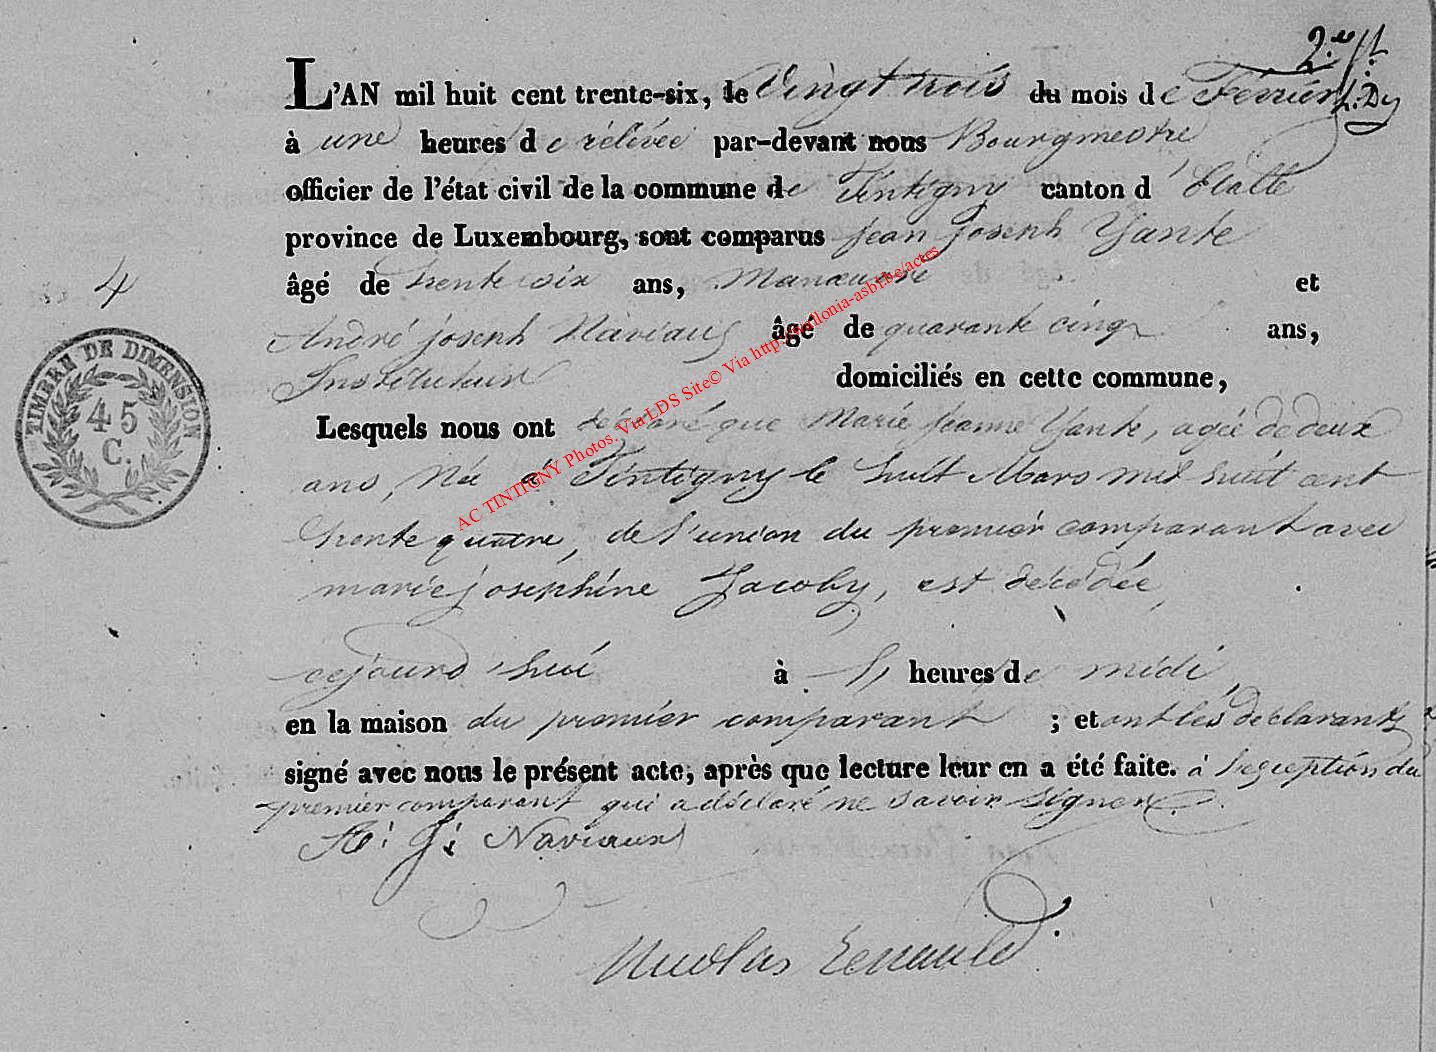 L'AN mil huit cent trente-six, le Vingt trois du mois de Février
à une heures de rélévée par-devant nous Bourgmestre
officier de l'état civil de la commune de Tintigny canton d'Etalle
province de Luxembourg, sont comparus jean joseph Yante
âgé de trente six ans, Manœuvre et
4
André joseph Naviaux âgé de quarante cinq ans,
Instituteur domiciliés en cette commune,
TIMBRE DE DIMENSION
45
C.
Lesquels nous ont déclaré que Marie jeanne Yante, agée de deux
ans, Née à Tintigny le huit Mars mil huit cent
trente quatre, de l'union du premier comparant avec
marie josephine Jacoby, est décédée,
cejourd'hui à heures de midi,
en la maison du premier comparant ; et ont les déclarants
signé avec nous le présent acte, après que lecture leur en a été faite. à l'exception du
premier comparant qui a déclaré ne savoir signer.
A: J: Naviaux
Nicolas
AC TINTIGNY Photos. Via LDS Site© Via http://wallonia-asbl.be/actes